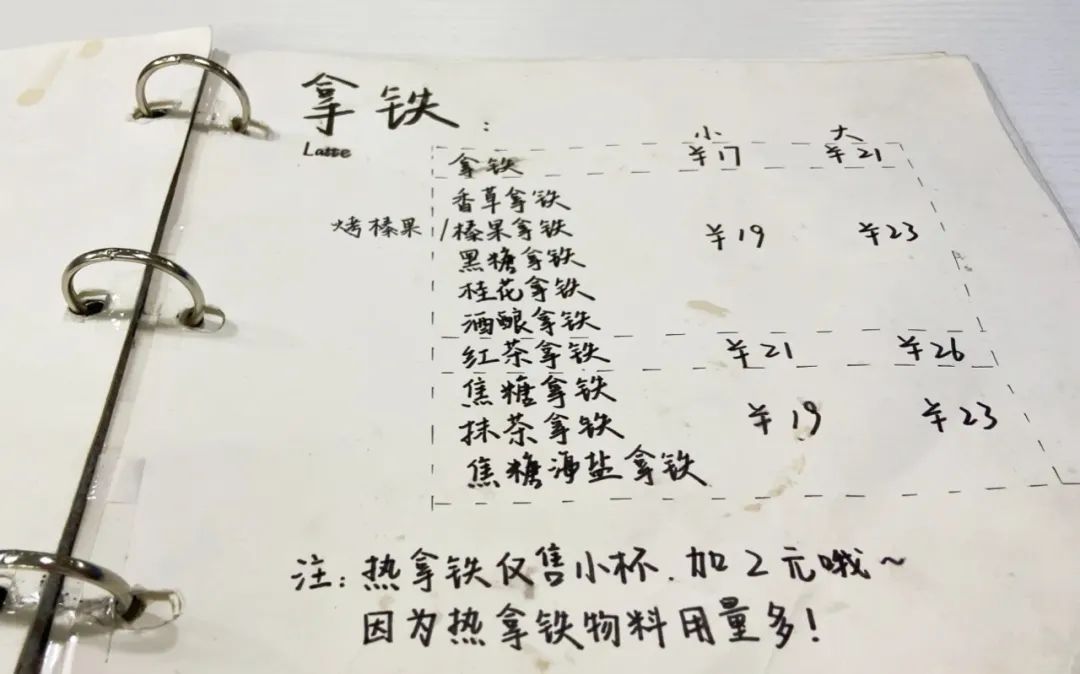 拿铁:
Latte
小 大
拿铁 ¥17 ¥21
香草拿铁
烤榛果/榛果拿铁 ¥19 ¥23
黑糖拿铁
桂花拿铁
酒酿拿铁
红茶拿铁 ¥21 ¥26
焦糖拿铁
抹茶拿铁 ¥19 ¥23
焦糖海盐拿铁
注:热拿铁仅售小杯.加2元哦~
因为热拿铁物料用量多!